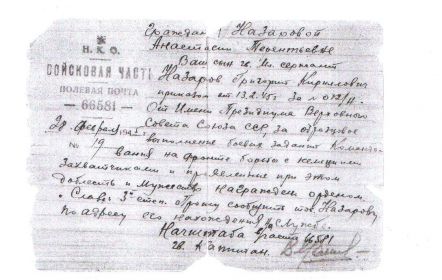 Граждан. Назаровой
Анастасии Терентьевне
Н. К. О.
ВОЙСКОВАЯ ЧАСТЬ
ПОЛЕВАЯ ПОЧТА
— 66581 —
28 февраля 194
№ 19
Ваш сын гв. мл. сержант
Назаров Григорий Кириллович
приказом от 13.2.45г. за №
От Имени Президиума Верховного
Совета Союза ССР, за образцовое
выполнение боевых заданий Командо-
вания на фронте борьбы с немецкими
Захватчиками и проявленные при этом
доблесть и Мужество награжден орденом
"Слава" 3й степ. о чем сообщите тов. Назарову
по адресу его нахождения на службе.
Нач. штаба в/части 66581
гв. Капитан